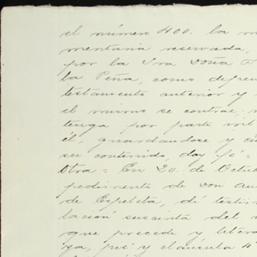 el número 400. la m
mentaria reservada,
por la Sra Doña
la Peña, como
testamento anterior y
el mismo se contrae
tenga por parte
él, guardandose y
su contenido, doy fé =
Otra = En 20. de Octu
pedimento de don
de Espeleta, dí testi
lación sucinta del
que precede y litera
za, pié y cláusula 4